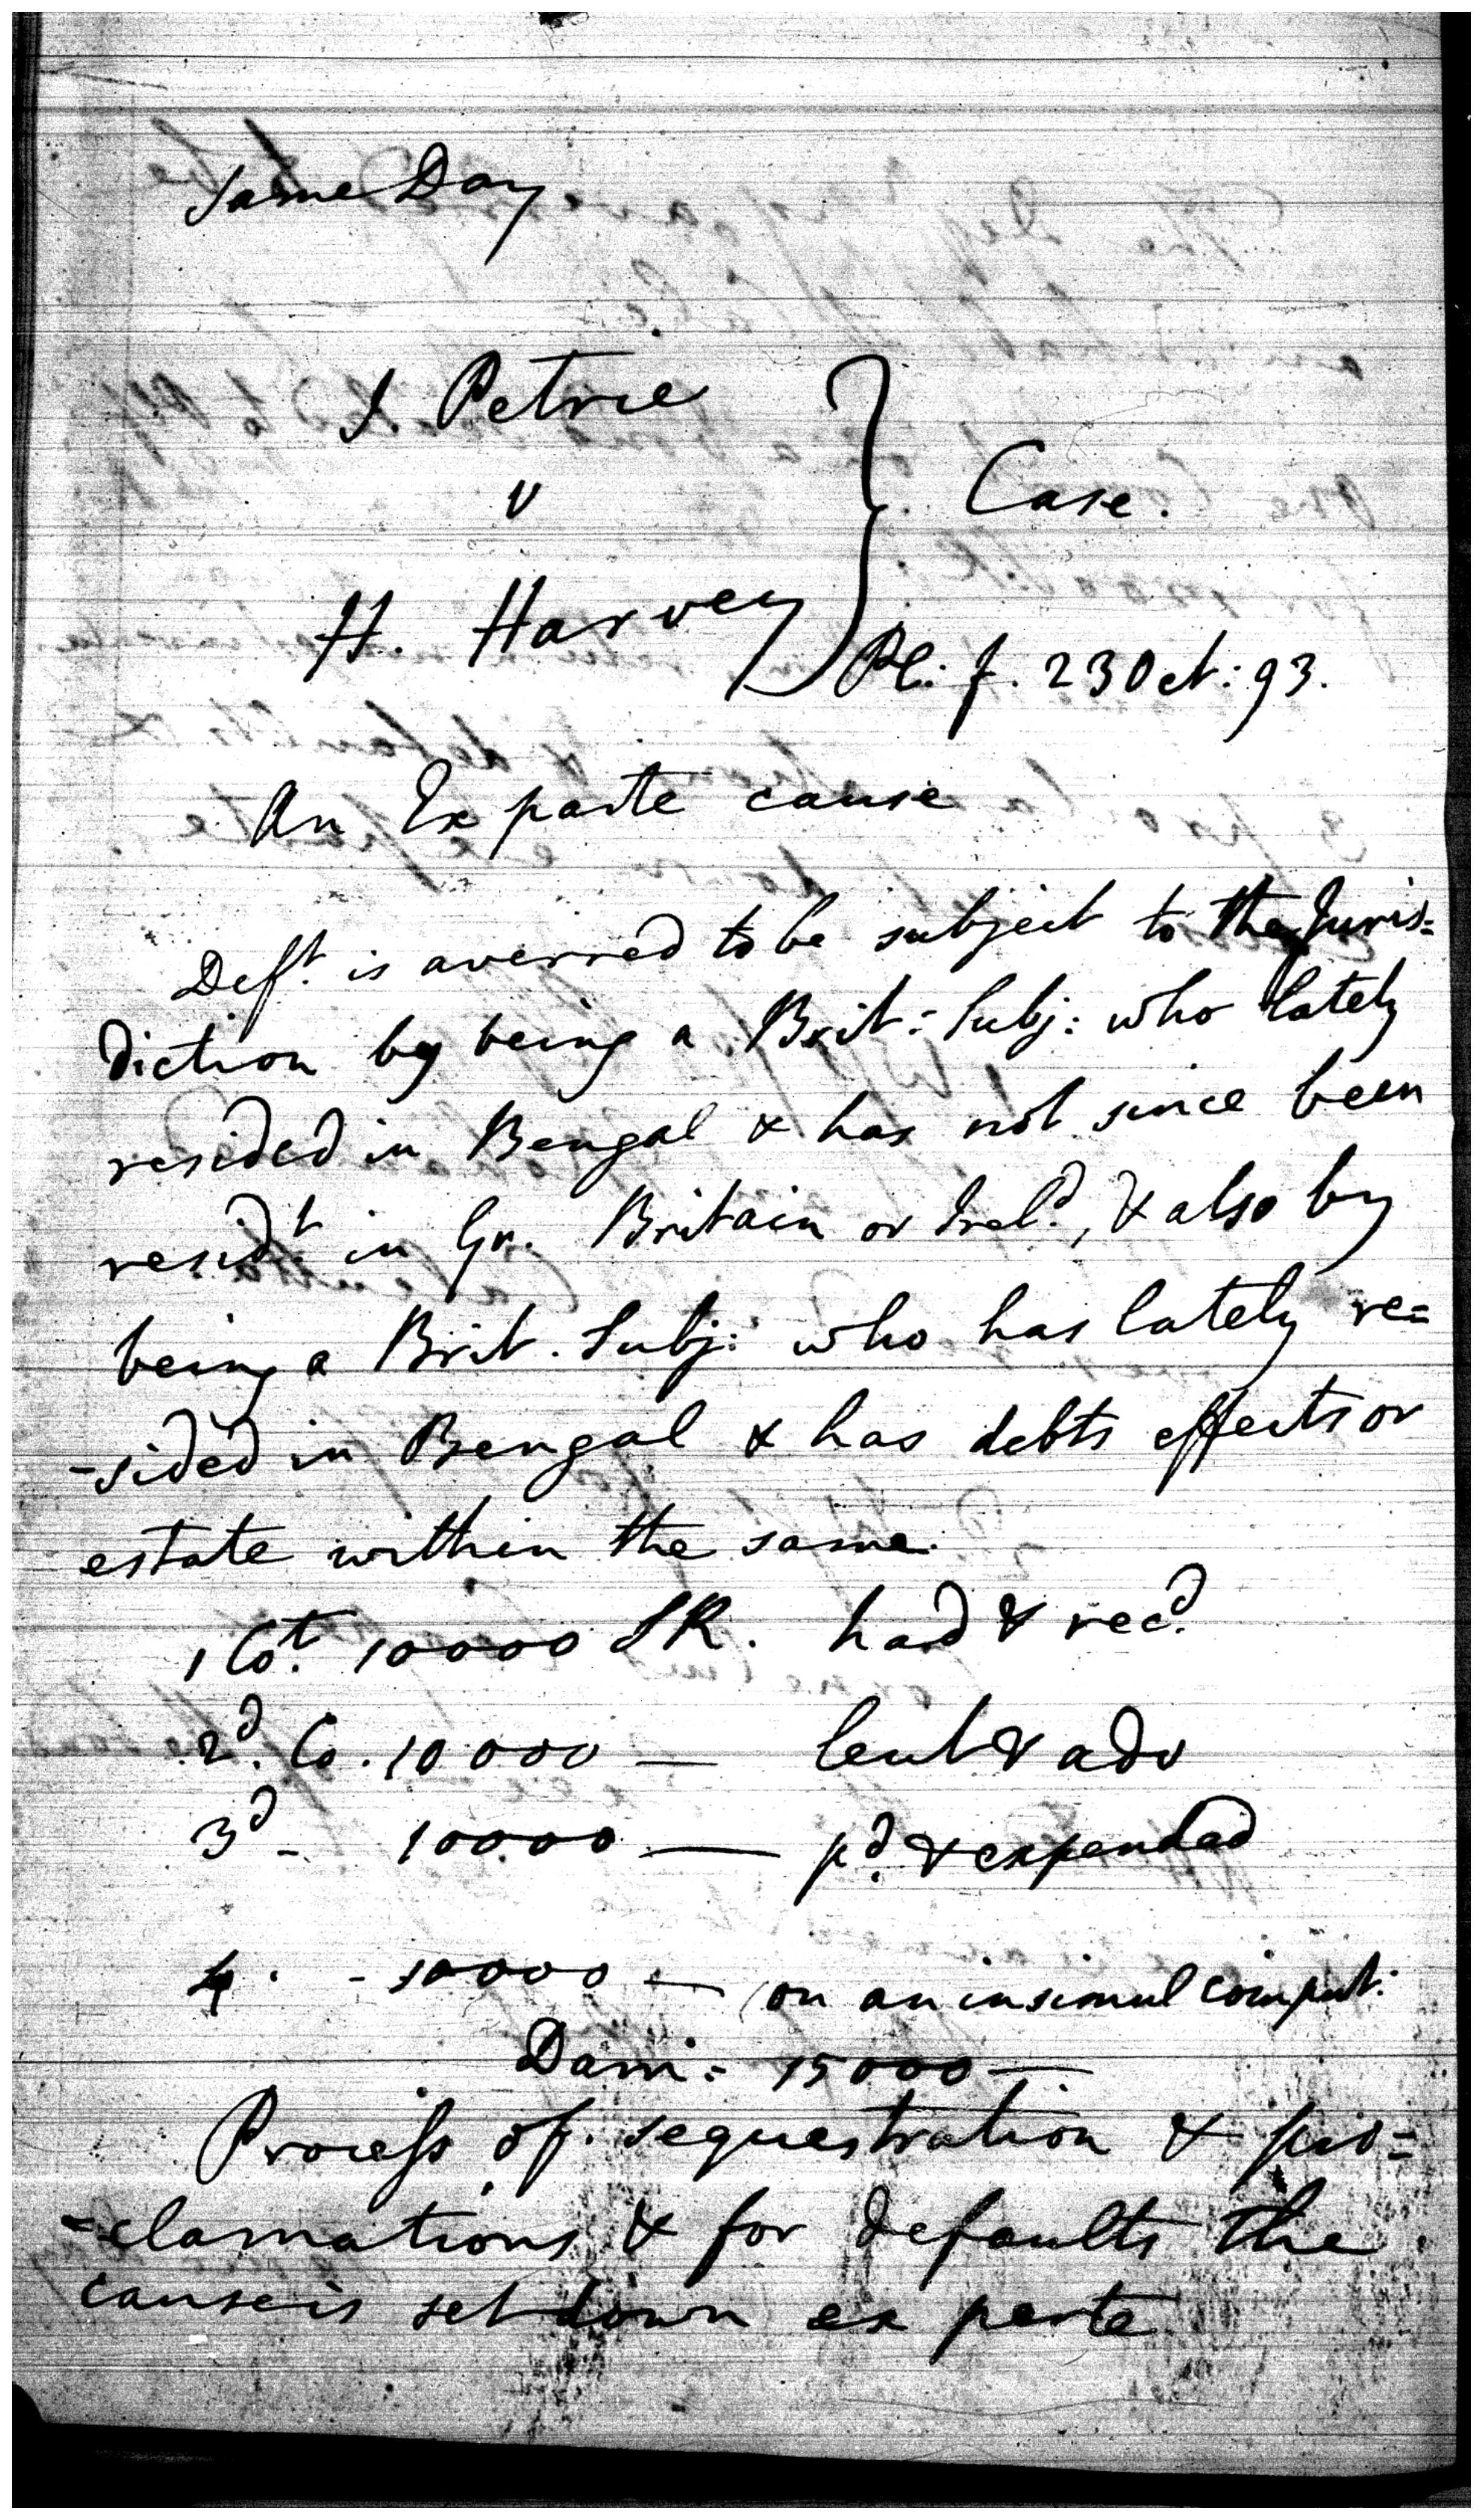 Same Day
J. Petrie
v
Case.
H. Harvey
Pl: f. 23 Oct: 93.
An Ex parte cause
Deft. is averred to be subject to the Juris=
diction by being a Brit: Subj: who lately
resided in Bengal & has not since been
residt in Gr. Britain or Ireld., & also by
being a Brit. Subj: who has lately re=
-sided in Bengal & has debts effects or
estate within the same.
1 Cot. 10000 SR. had & recd.
2d. Co. 10000 — lent & adv
3d - 10000 — pd. & expended
4. - 10000 — on an insimul comput:
Dam: 15000 —
Process of sequestration & pro=
=clamations & for defaults the
cause is set down ex parte